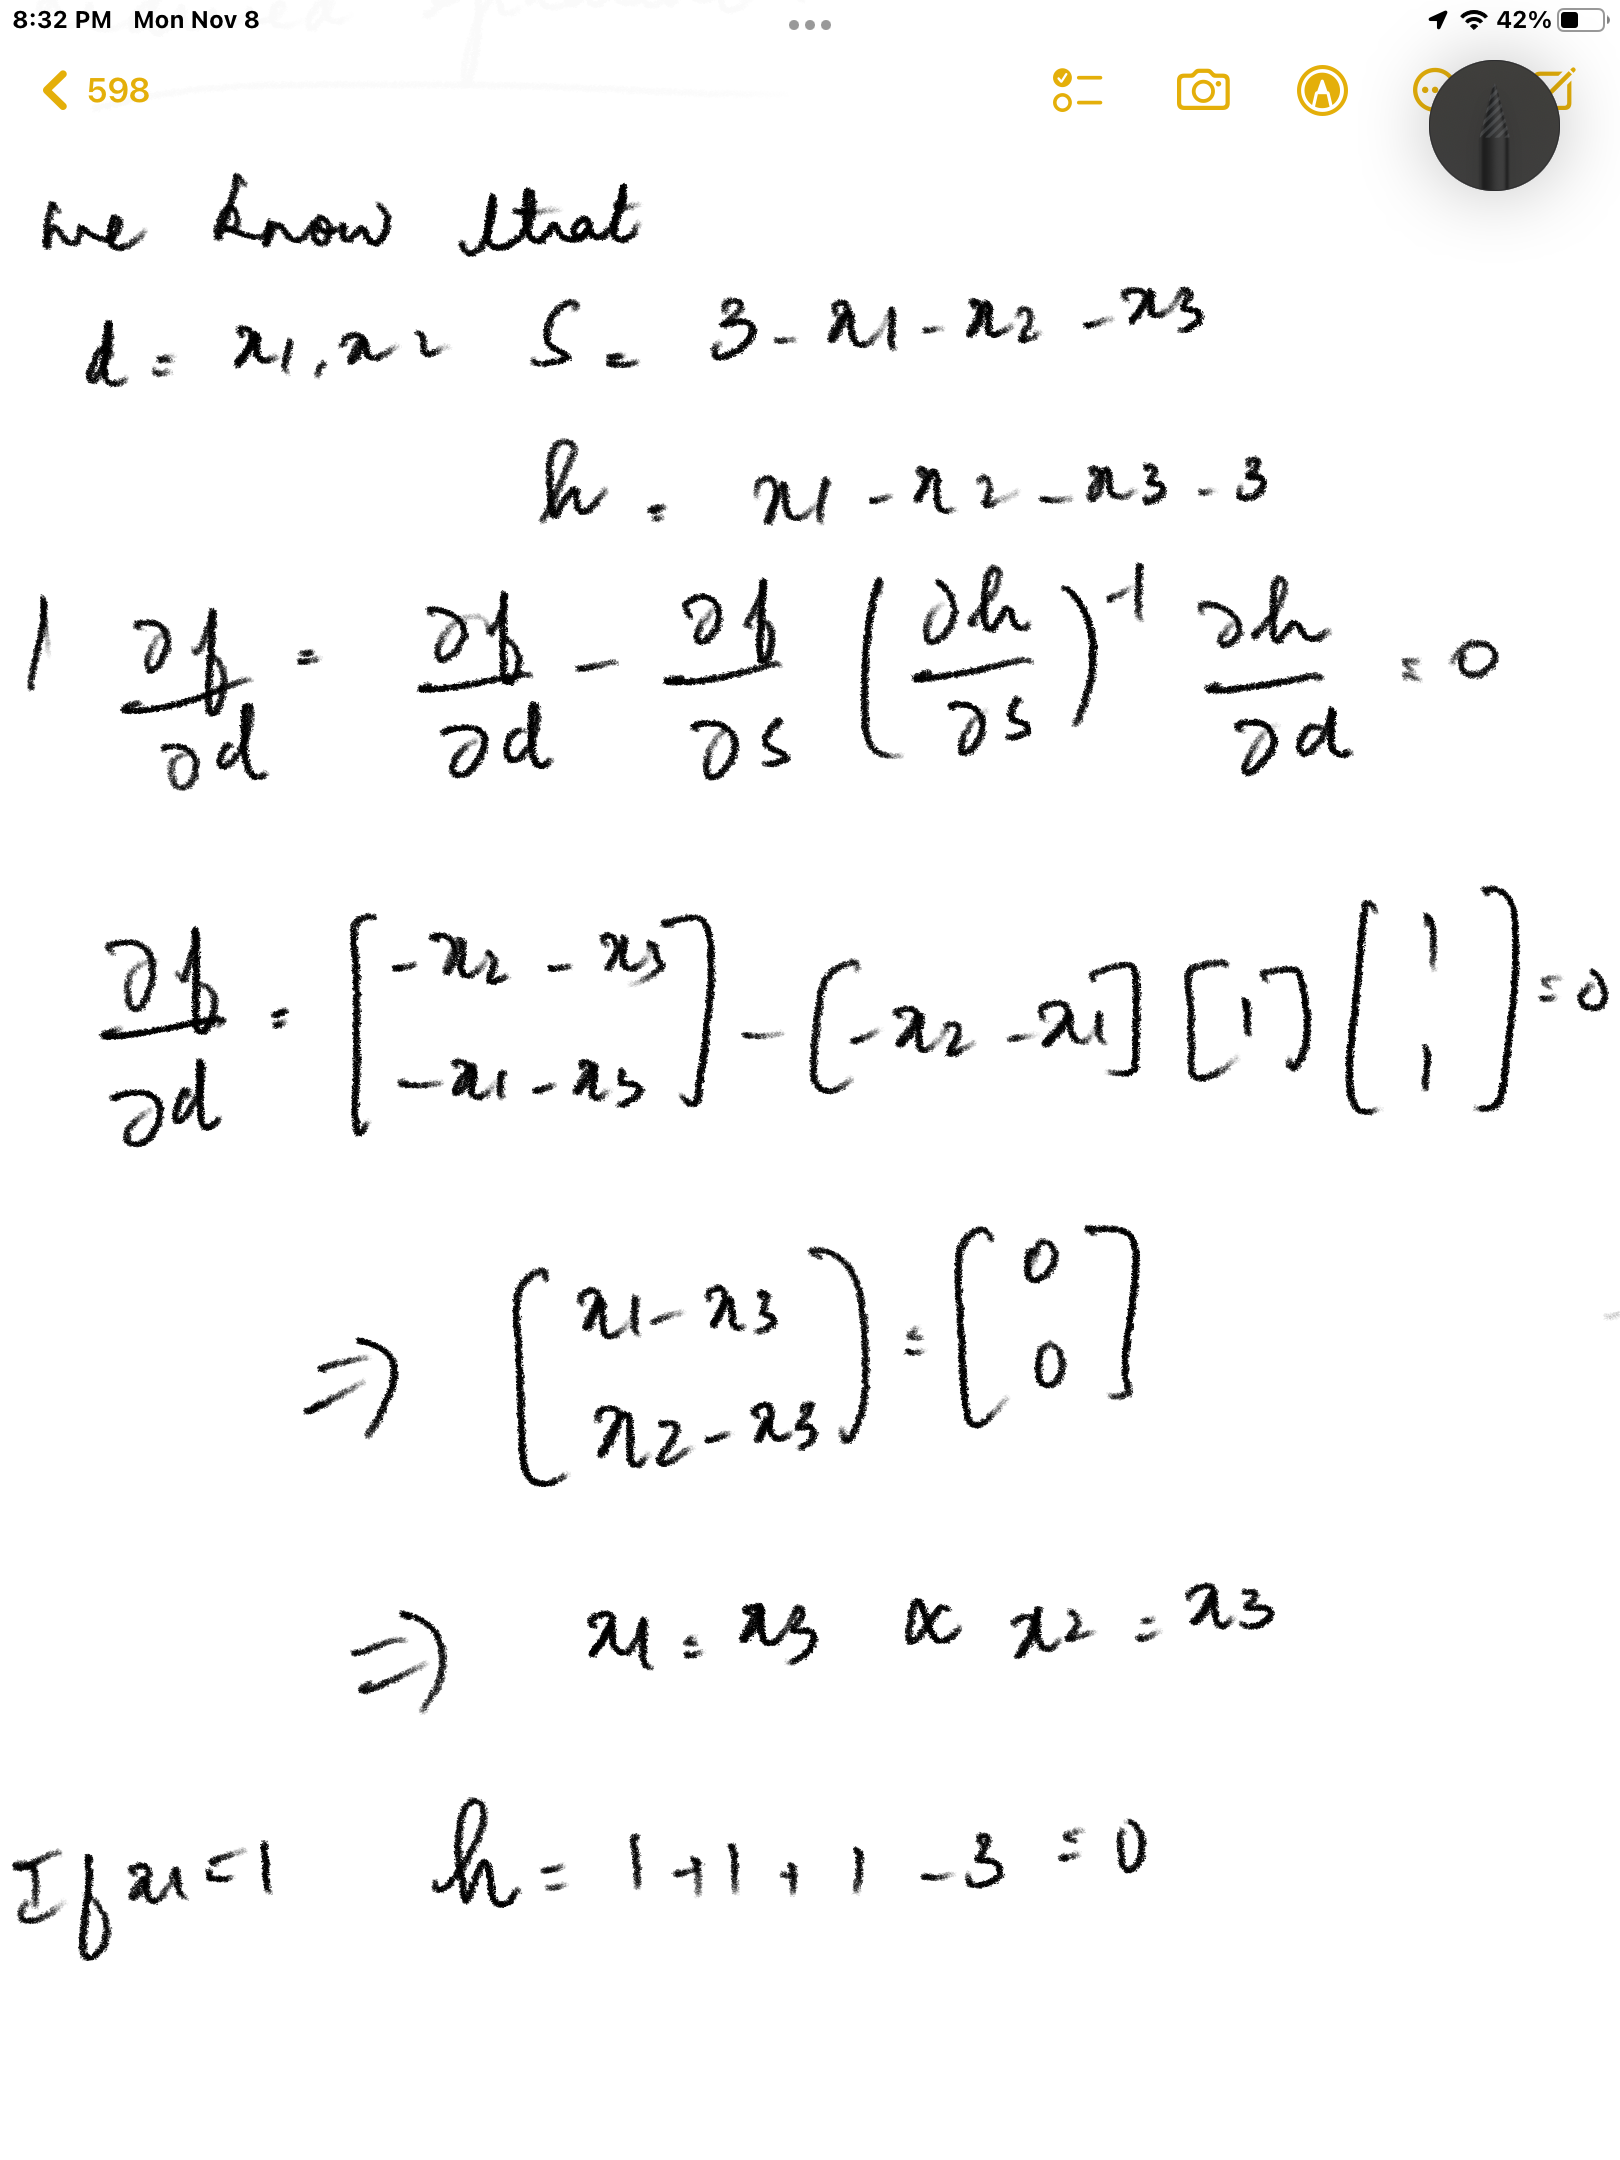 8:32 PM Mon Nov 8 42%
598
we know that
d = x1, x2 S = 3 - x1 - x2 - x3
h = x1 - x2 - x3 - 3
1 ∂f/∂d = ∂f/∂d - ∂f/∂s (∂h/∂s)^-1 ∂h/∂d = 0
∂f/∂d = [-x2 - x3; -x1 - x3] - [-x2 - x1] [1] [1; 1] = 0
⇒ (x1 - x3; x2 - x3) = [0; 0]
⇒ x1 = x3 & x2 = x3
If x1 = 1 h = 1 + 1 + 1 - 3 = 0